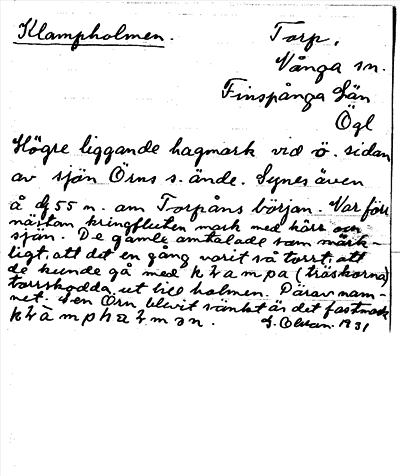 Klampholmen.
Torp,
Vånga sn.
Finspånga län
Ögl
Högre liggande hagmark vid ö. sidan
av sjön Örns s. ände. Synes även
å dj 55 n. om Torpåns början. Var förr
nästan kringfluten mark med kärr och
sjön. De gamle omtalade som märk-
ligt, att det en gång varit så torrt, att
de kunde gå med klampa (träskorna)
torrskodda ut till holmen. Därav nam-
net. Sen Örn blivit sänkt är det fastmark
klàmphalmən.
1931